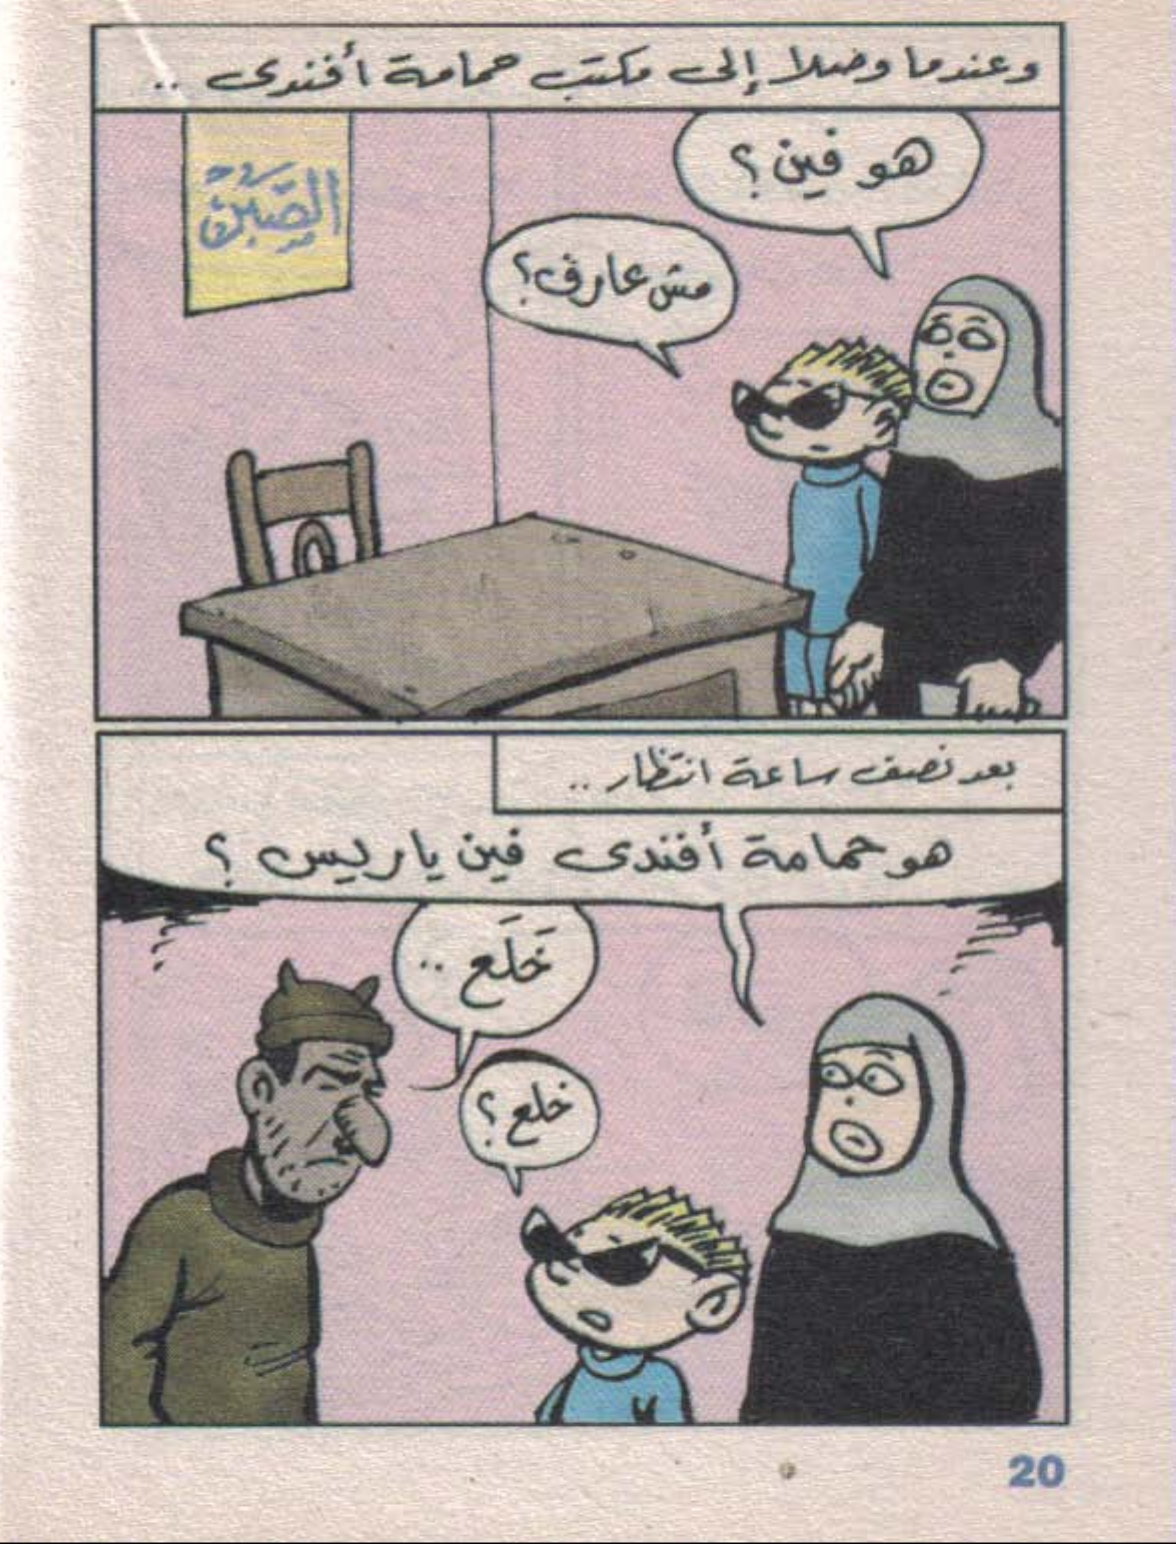 وعندما وصلا إلى مكتب حمامة أفندى ..
هو فين؟
مش عارف؟
الصبر
بعد نصف ساعة انتظار ..
هو حمامة أفندى فين يا ريس ؟
خَلَع ..
خلع ؟
20